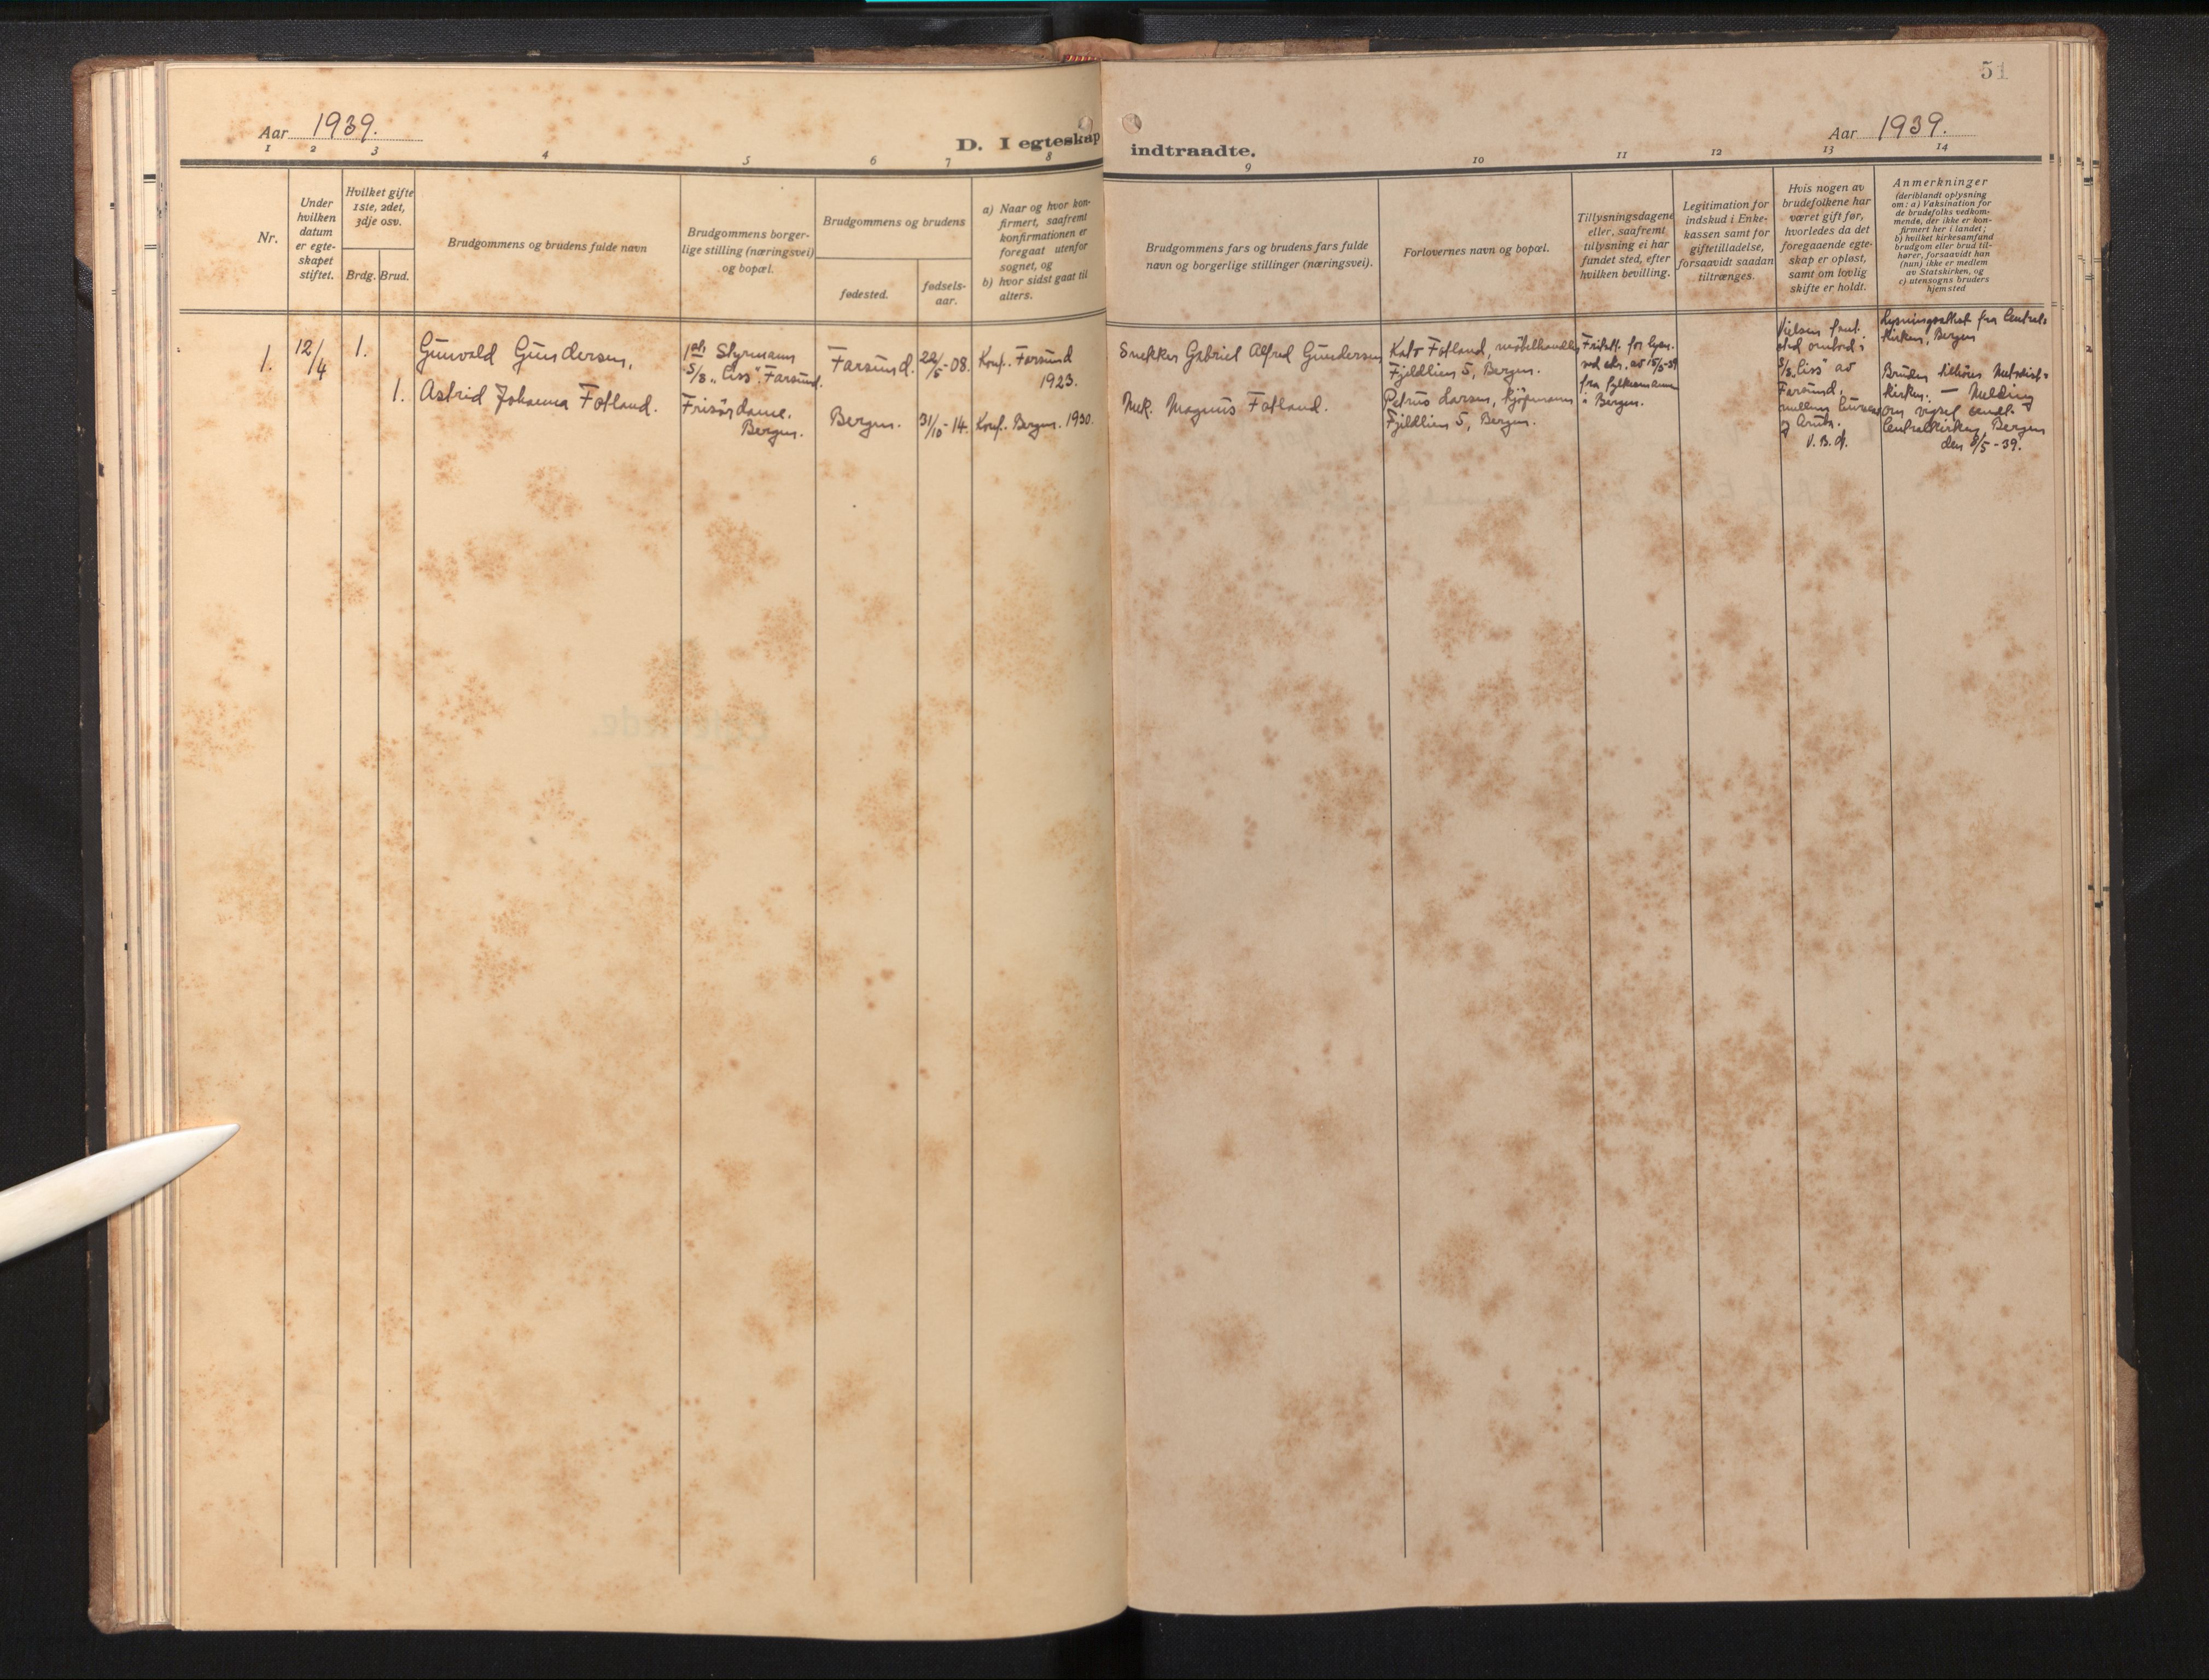 51
Aar 1939.
D. I egteskap
indtraadte.
Aar 1939.
1 2 3 4 5 6 7 8
9 10 11 12 13 14
Nr.
Under
hvilken
datum
er egte-
skapet
stiftet.
Hvilket gifte
1ste, 2det,
3dje osv.
Brdg. Brud.
Brudgommens og brudens fulde navn
Brudgommens borger-
lige stilling (næringsvei)
og bopæl.
Brudgommens og brudens
fødested.
fødsels-
aar.
a) Naar og hvor kon-
firmert, saafremt
konfirmationen er
foregaat utenfor
sognet, og
b) hvor sidst gaat til
alters.
Brudgommens fars og brudens fars fulde
navn og borgerlige stillinger (næringsvei).
Forlovernes navn og bopæl.
Tillysningsdagene
eller, saafremt
tillysning ei har
fundet sted, efter
hvilken bevilling.
Legitimation for
indskud i Enke-
kassen samt for
giftetilladelse,
forsaavidt saadan
tiltrænges.
Hvis nogen av
brudefolkene har
været gift før,
hvorledes da det
foregaaende egte-
skap er opløst,
samt om lovlig
skifte er holdt.
Anmerkninger
(deriblandt oplysning
om: a) Vaksination for
de brudefolks vedkom-
mende, der ikke er kon-
firmert her i landet;
b) hvilket kirkesamfund
brudgom eller brud til-
hører, forsaavidt han
(hun) ikke er medlem
av Statskirken, og
c) utensogns bruders
hjemsted
1.
12/4
1.
Gunvald Gundersen,
Styrmann
S/S "Ciss". Farsund.
Farsund.
22/5-08.
Konf. Farsund
1923.
Snekker Gabriel Alfred Gundersen
Kato Fotland, møbelhandler
Fjeldlien 5, Bergen.
1.
Astrid Johanna Fotland.
Frisørdame.
Bergen.
Bergen.
31/10-14.
Konf. Bergen. 1930.
Mek. Magnus Fotland.
Petrus Larsen, kjøpmann
Fjeldlien 5, Bergen.
Fritatt for lysn.
fra fylkesmann
i Bergen.
Vielsen funnet
sted ombord i
S/S "Ciss" av
Farsund,
V. B. d.
Lysningsattest fra Central-
kirken, Bergen
Bruden tilhører Metodist-
kirken. — Melding
om vigsel sendt
Centralkirken, Bergen
den 8/5-39.